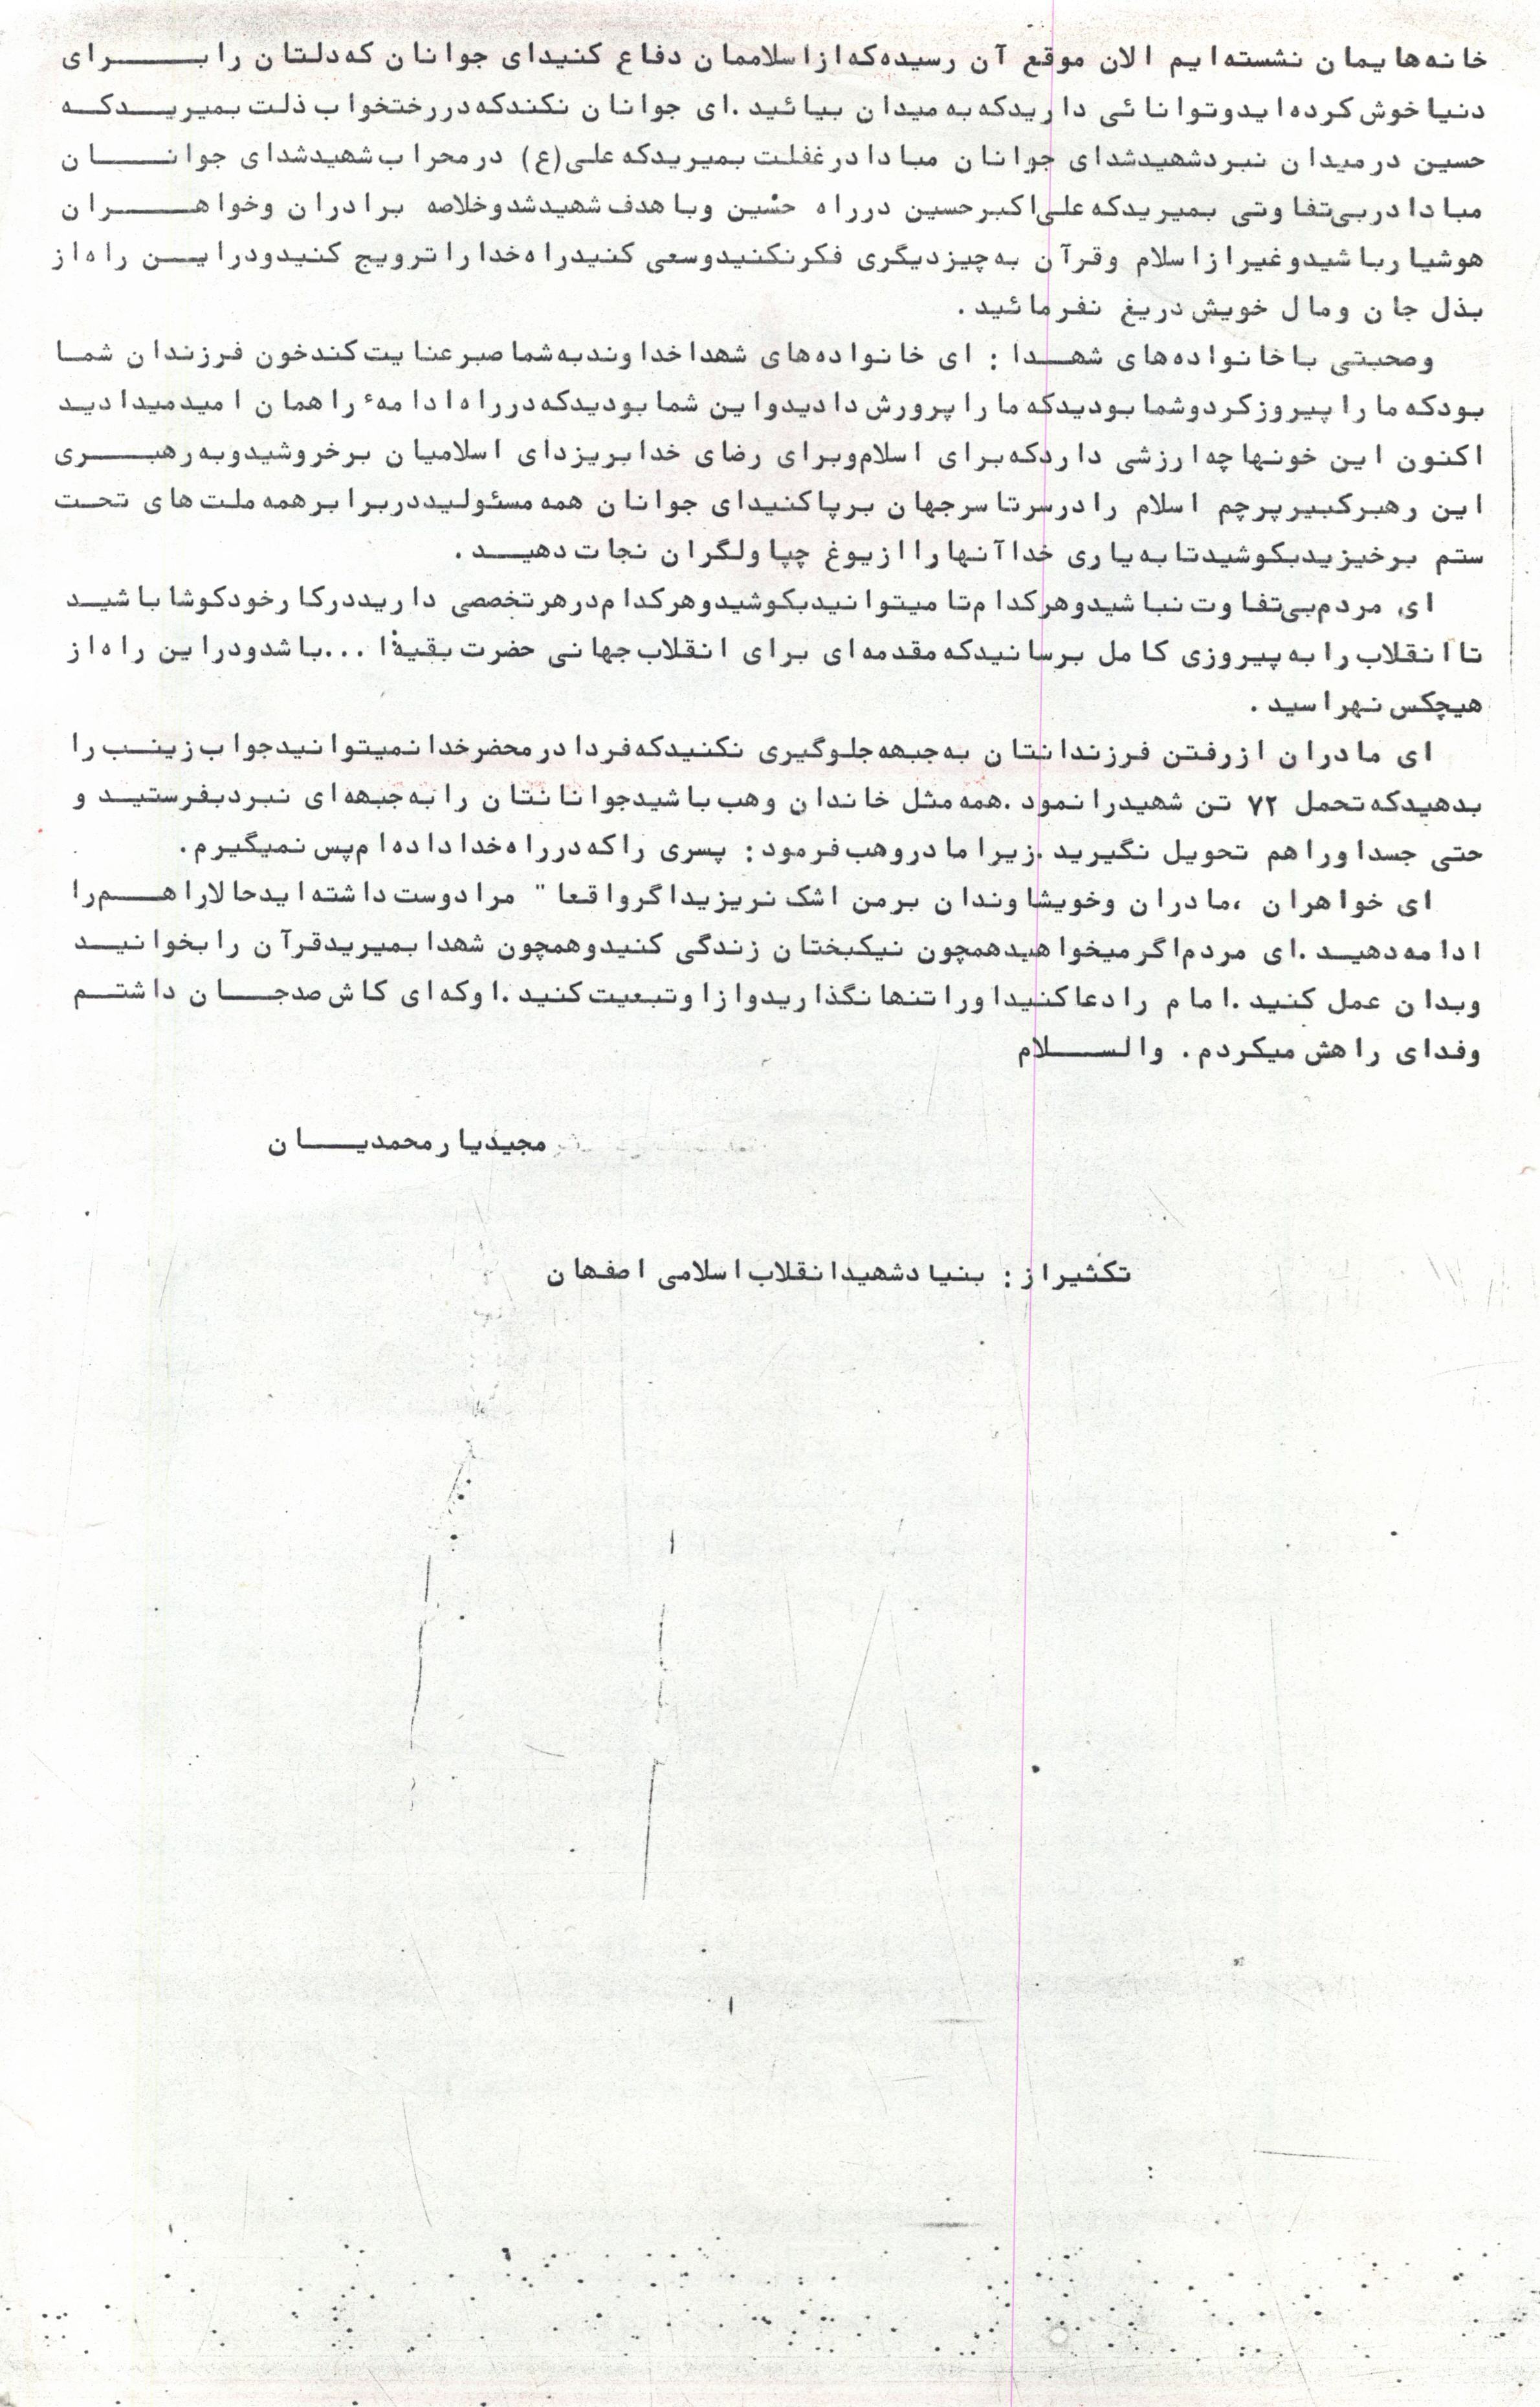 خانه‌هایمان نشسته‌ایم الان موقع آن رسیده‌که‌ازاسلاممان دفاع کنیدای جوانان که‌دلتان رابـــرای
دنیاخوش‌کرده‌ایدوتوانائی داریدکه‌به‌میدان بیائید.ای جوانان نکندکه‌دررختخواب‌ذلت‌بمیریدکـه
حسین درمیدان نبردشهیدشدای جوانان مبادادرغفلت‌بمیریدکه‌علی(ع) درمحراب‌شهیدشدای جوانـــان
مبادادربی‌تفاوتی بمیریدکه‌علی‌اکبرحسین درراه حسین وباهدف‌شهیدشدوخلاصه برادران وخواهـــران
هوشیارباشیدوغیرازاسلام وقرآن به‌چیزدیگری فکرنکنیدوسعی کنیدراه‌خداراترویج کنیدودرایـن راه‌از
بذل جان ومال خویش‌دریغ نفرمائید.
وصحبتی باخانواده‌های شهـدا : ای خانواده‌های شهداخداوندبه‌شماصبرعنایت‌کندخون فرزندان شمـا
بودکه‌مارا پیروزکردوشمابودیدکه‌مارا پرورش‌دادیدواین شمابودیدکه‌درراه‌ادامهٔ راهمان امیدمیدادید
اکنون این خونهاچه‌ارزشی داردکه‌برای اسلام‌وبرای رضای خدابریزدای اسلامیان برخروشیدوبه‌رهبـــری
این رهبرکبیرپرچم اسلام رادرسرتاسرجهان برپاکنیدای جوانان همه‌مسئولیددربرابرهمه‌ملت‌های تحت
ستم برخیزیدبکوشیدتابه‌یاری خداآنهاراازیوغ چپاولگران نجات‌دهیـد.
ای مردم‌بی‌تفاوت‌نباشیدوهرکدام‌تامیتوانیدبکوشیدوهرکدام‌درهرتخصصی داریددرکارخودکوشاباشید
تاانقلاب‌رابه‌پیروزی کامل برسانیدکه‌مقدمه‌ای برای انقلاب‌جهانی حضرت‌بقیةا ...باشدودراین راه‌از
هیچکس‌نهراسید.
ای مادران ازرفتن فرزندانتان به‌جبهه‌جلوگیری نکنیدکه‌فردا درمحضرخدانمیتوانیدجواب‌زینب‌را
بدهیدکه‌تحمل ۷۲ تن شهیدرانمود.همه‌مثل خاندان وهب‌باشیدجوانانتان رابه‌جبهه‌ای نبردبفرستید و
حتی جسداوراهم تحویل نگیرید.زیرامادروهب‌فرمود: پسری راکه‌درراه‌خداداده‌ام‌پس‌نمیگیرم.
ای خواهران ،مادران وخویشاوندان برمن اشک‌نریزیداگرواقعا" مرادوست‌داشته‌ایدحالاراهـم‌را
ادامه‌دهیـد.ای مردم‌اگرمیخواهیدهمچون نیکبختان زندگی کنیدوهمچون شهدابمیریدقرآن رابخوانیـد
وبدان عمل کنید.امام رادعاکنیداوراتنهانگذاریدوازاوتبعیت‌کنید.اوکه‌ای کاش‌صدجـــان داشتـم
وفدای راهش‌میکردم. والســـلام
مجیدیارمحمدیـــان
تکثیراز: بنیادشهیدانقلاب‌اسلامی اصفهان